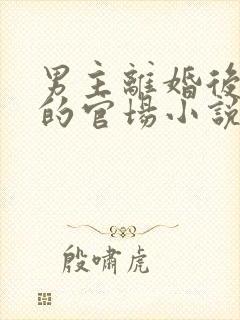 男主離婚後
的官場小說
殷嘯虎